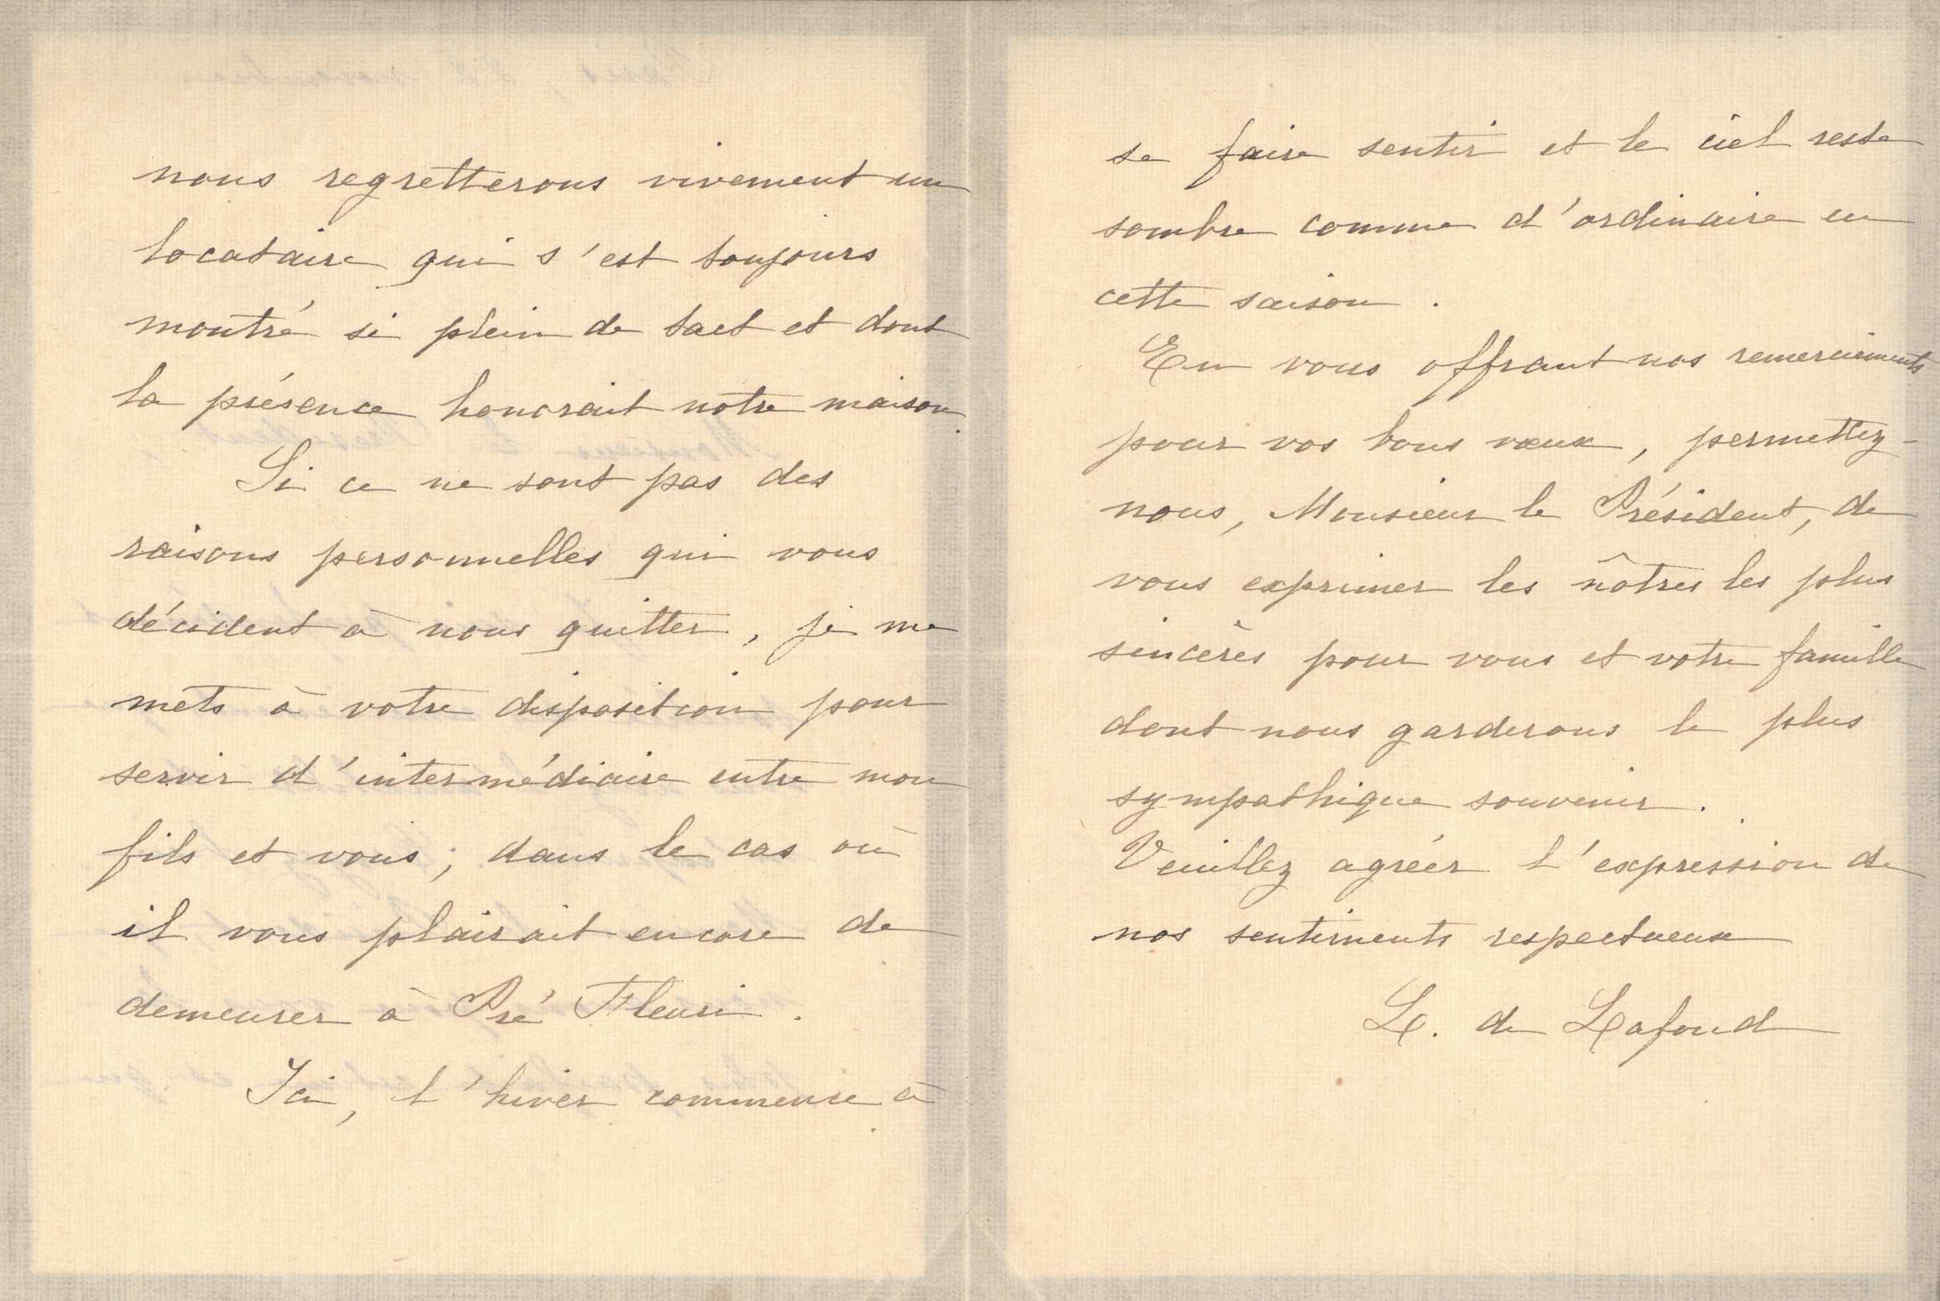 nous regretterons vivement un
locataire qui s'est toujours
montré si plein de tact et dont
la présence honorait notre maison.
Si ce ne sont pas des
raisons personnelles qui vous
décident à nous quitter, je me
mets à votre disposition pour
servir d'intermédiaire entre mon
fils et vous ; dans le cas où
il vous plairait encore de
demeurer à Pré Fleuri.
Ici, l'hiver commence à
se faire sentir et le ciel reste
sombre comme d'ordinaire en
cette saison.
En vous offrant nos remerciements
pour vos bons vœux, permettez-
nous, Monsieur le Président, de
vous exprimer les nôtres les plus
sincères pour vous et votre famille
dont nous garderons le plus
sympathique souvenir.
Veuillez agréer l'expression de
nos sentiments respectueux
L. de Lafond